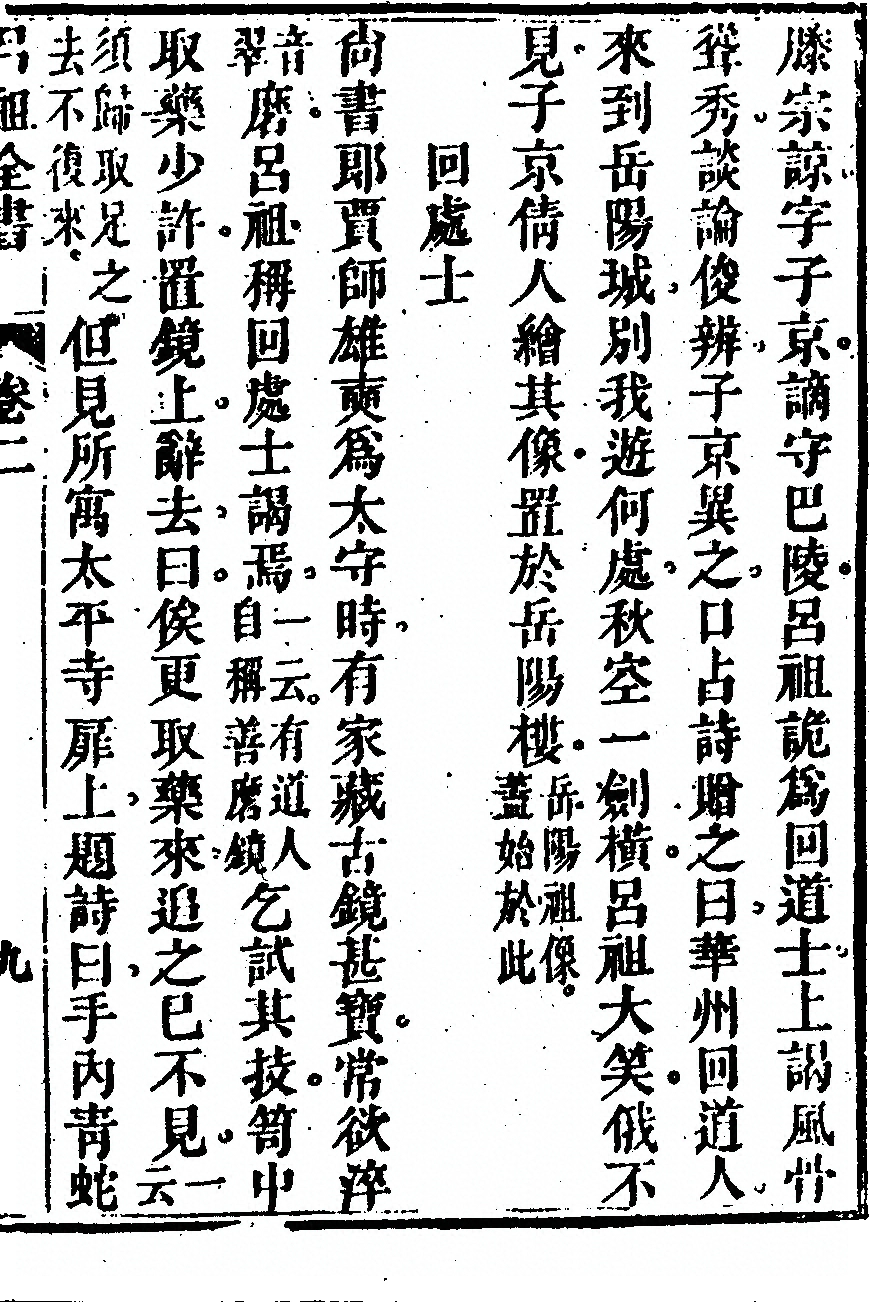 滕宗諒字子京謫守巴陵呂祖詭爲回道士上謁風
聳秀談論俊辨子京異之口占詩贈之曰華州回道人
來到岳陽城別我遊何處秋空一劍橫呂祖大笑俄不
見子京倩人繪其像置於岳陽樓岳陽祖像蓋始於此
回處士
尚書郎賈師雄奭爲太守時有家藏古鏡甚寶常欲淬
音翠磨呂祖稱回處士謁焉一云有道人自稱善磨鏡乞試其技笥中
取藥少許置鏡上辭去曰俟更取藥來追之已不見一云
須歸取足之去不復來但見所寓太平寺扉上題詩曰手內青蛇
呂祖全書 卷二 九